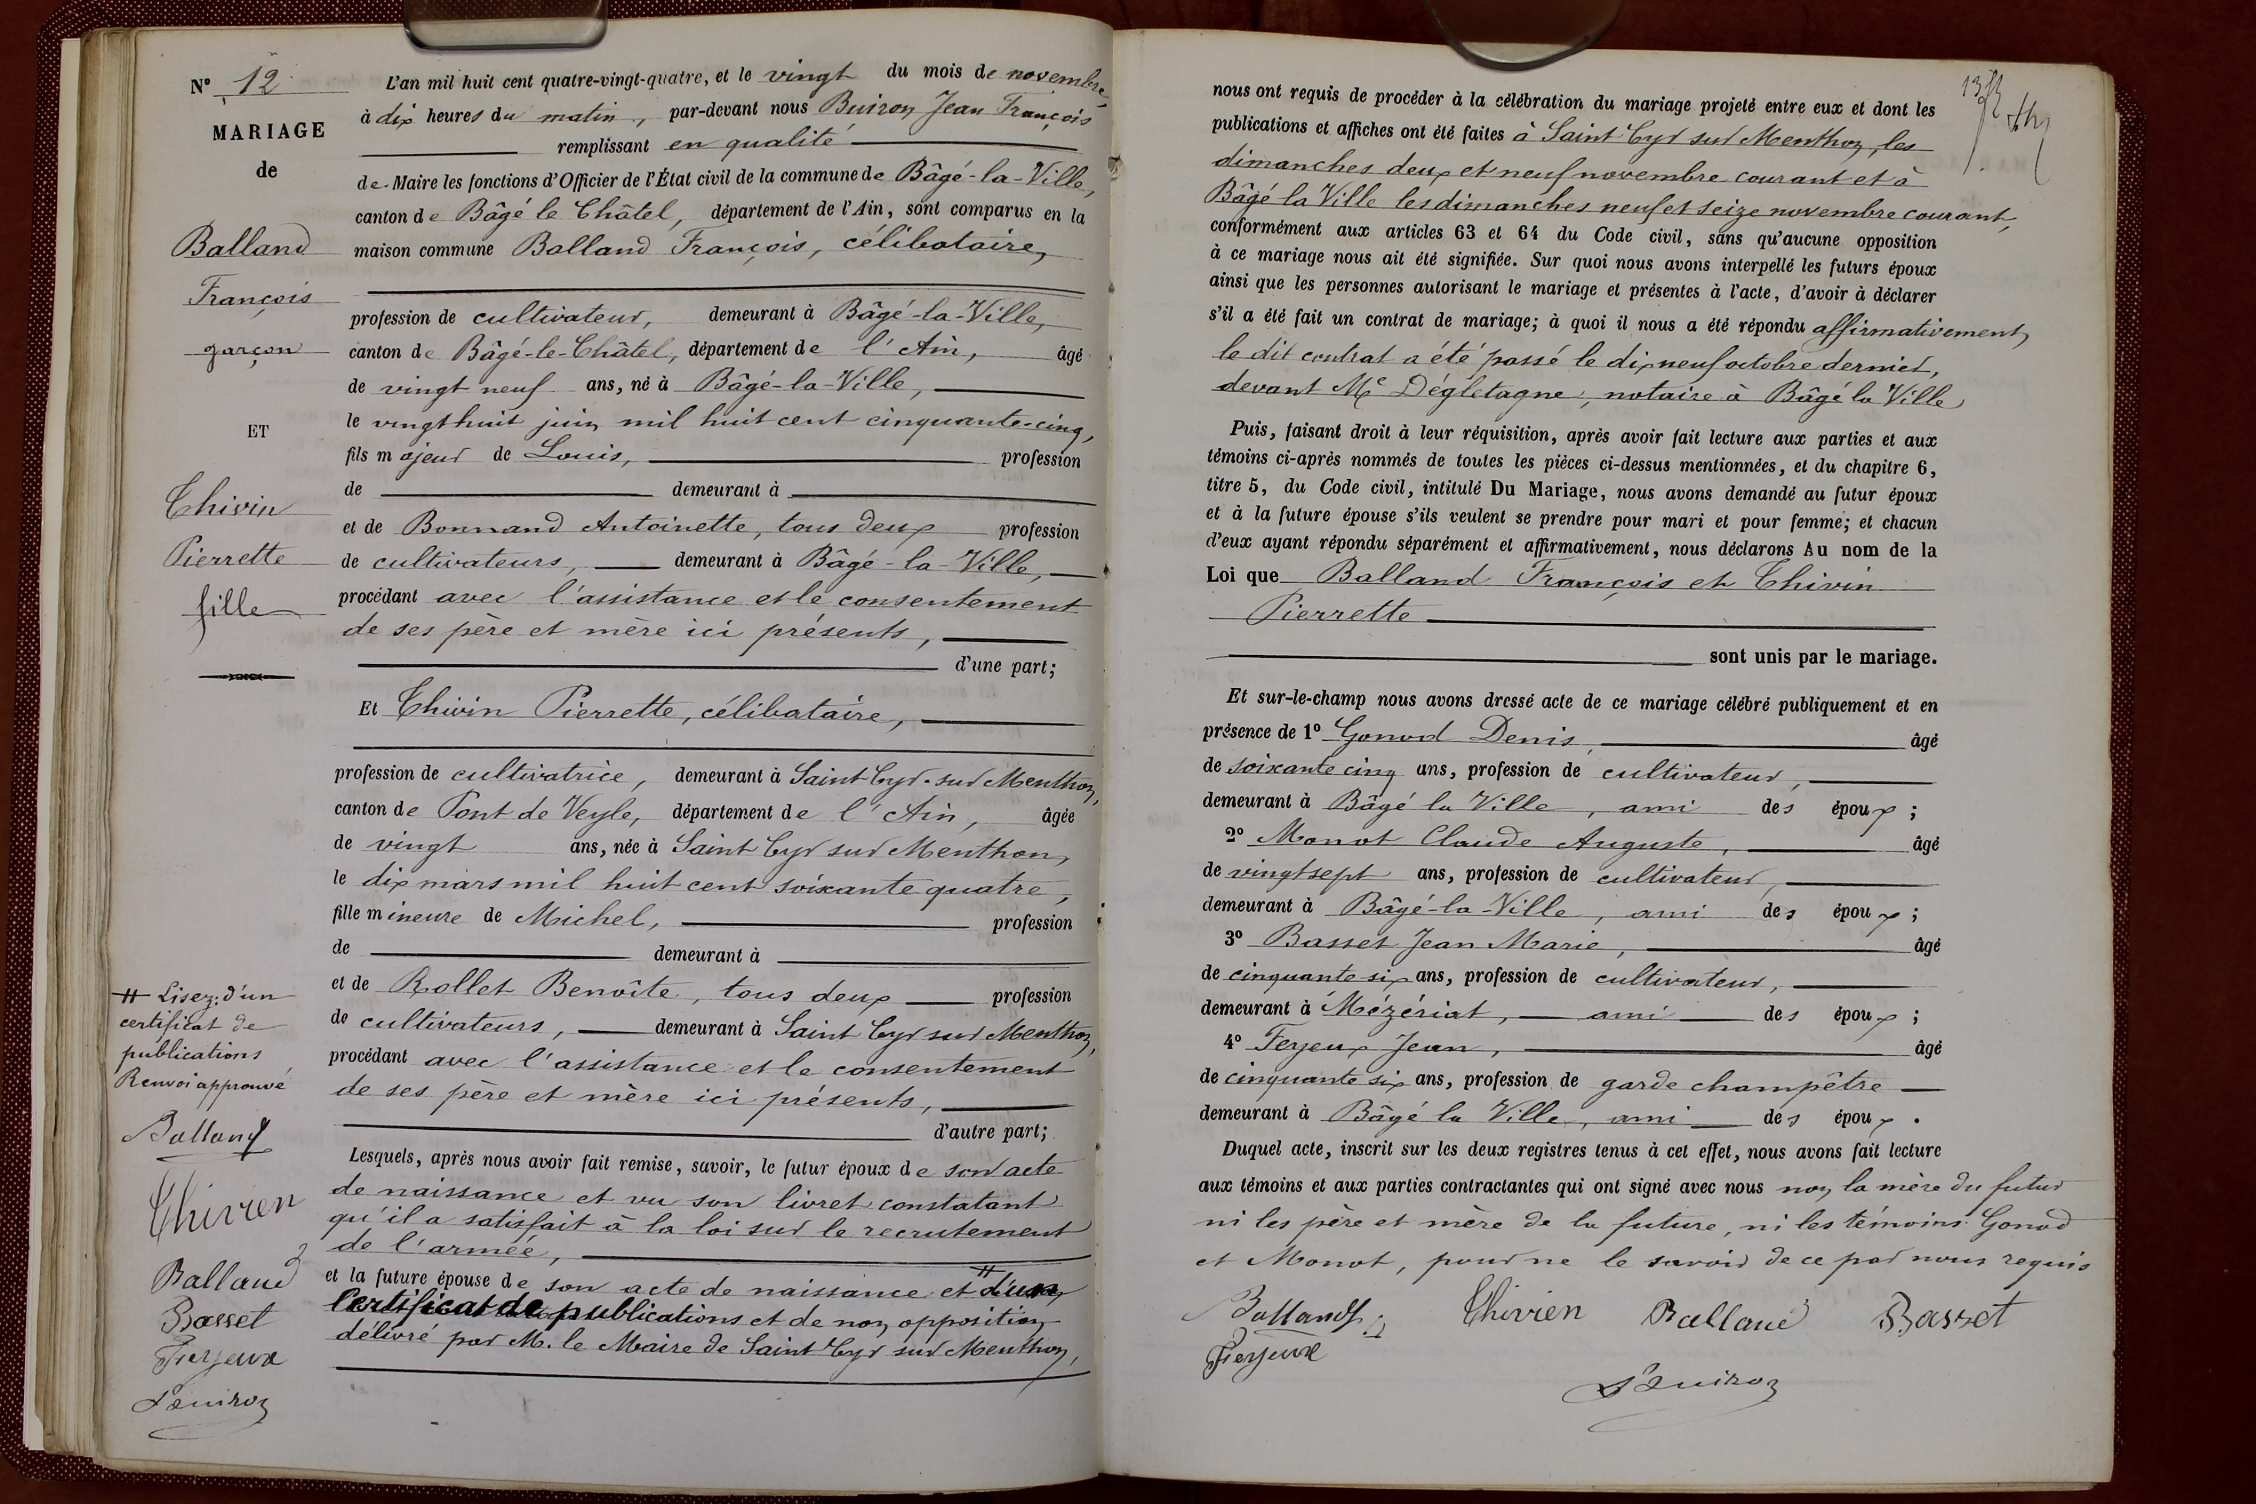 N° 12
MARIAGE
de
Balland
François
garçon
ET
Thivin
Pierrette
fille
L'an mil huit cent quatre-vingt-quatre, et le vingt du mois de novembre,
à dix heures du matin, par-devant nous Buiron Jean François
remplissant en qualité
de Maire les fonctions d'Officier de l'État civil de la commune de Bâgé-la-Ville,
canton de Bâgé le Châtel, département de l'Ain, sont comparus en la
maison commune Balland François, célibataire,
profession de cultivateur, demeurant à Bâgé-la-Ville,
canton de Bâgé-le-Châtel, département de l'Ain, âgé
de vingt neuf ans, né à Bâgé-la-Ville,
le vingt huit juin mil huit cent cinquante-cinq,
fils majeur de Louis, profession
de demeurant à
et de Bonnand Antoinette, tous deux profession
de cultivateurs, demeurant à Bâgé-la-Ville,
procédant avec l'assistance et le consentement
de ses père et mère ici présents,
d'une part;
Et Thivin Pierrette, célibataire,
profession de cultivatrice, demeurant à Saint-Cyr-sur Menthon,
canton de Pont de Veyle, département de l'Ain, âgée
de vingt ans, née à Saint Cyr sur Menthon,
le dix mars mil huit cent soixante quatre,
fille mineure de Michel, profession
de demeurant à
et de Rollet Benoîte, tous deux profession
de cultivateurs, demeurant à Saint Cyr sur Menthon,
procédant avec l'assistance et le consentement
de ses père et mère ici présents,
d'autre part;
Lesquels, après nous avoir fait remise, savoir, le futur époux de son acte
de naissance et vu son livret constatant
qu'il a satisfait à la loi sur le recrutement
de l'armée,
et la future épouse de son acte de naissance et # d'un
Certificat de publications et de non opposition
délivré par M. le Maire de Saint Cyr sur Menthon,
# Lisez: d'un
certificat de
publications
Renvoi approuvé
Balland
Thivien
Balland
Basset
Ferjeux
Buiron
13
nous ont requis de procéder à la célébration du mariage projeté entre eux et dont les
publications et affiches ont été faites à Saint Cyr sur Menthon, les
dimanches deux et neuf novembre courant et à
Bâgé la Ville les dimanches neuf et seize novembre courant,
conformément aux articles 63 et 64 du Code civil, sans qu'aucune opposition
à ce mariage nous ait été signifiée. Sur quoi nous avons interpellé les futurs époux
ainsi que les personnes autorisant le mariage et présentes à l'acte, d'avoir à déclarer
s'il a été fait un contrat de mariage; à quoi il nous a été répondu affirmativement,
le dit contrat a été passé le dix neuf octobre dernier,
devant Me Dégletagne, notaire à Bâgé la Ville
Puis, faisant droit à leur réquisition, après avoir fait lecture aux parties et aux
témoins ci-après nommés de toutes les pièces ci-dessus mentionnées, et du chapitre 6,
titre 5, du Code civil, intitulé Du Mariage, nous avons demandé au futur époux
et à la future épouse s'ils veulent se prendre pour mari et pour femme; et chacun
d'eux ayant répondu séparément et affirmativement, nous déclarons Au nom de la
Loi que Balland François et Thivin
Pierrette
sont unis par le mariage.
Et sur-le-champ nous avons dressé acte de ce mariage célébré publiquement et en
présence de 1° Gonod Denis, âgé
de soixante cinq ans, profession de cultivateur,
demeurant à Bâgé la Ville, ami des époux;
2° Monot Claude Auguste, âgé
de vingt sept ans, profession de cultivateur,
demeurant à Bâgé-la-Ville, ami des époux;
3° Basset Jean Marie, âgé
de cinquante-six ans, profession de cultivateur,
demeurant à Mézériat, ami des époux;
4° Ferjeux Jean, âgé
de cinquante six ans, profession de garde champêtre
demeurant à Bâgé la Ville, ami des époux.
Duquel acte, inscrit sur les deux registres tenus à cet effet, nous avons fait lecture
aux témoins et aux parties contractantes qui ont signé avec nous non la mère du futur
ni les père et mère de la future, ni les témoins Gonod
et Monot, pour ne le savoir de ce par nous requis
Balland Thivien Balland Basset
Ferjeux
Buiron